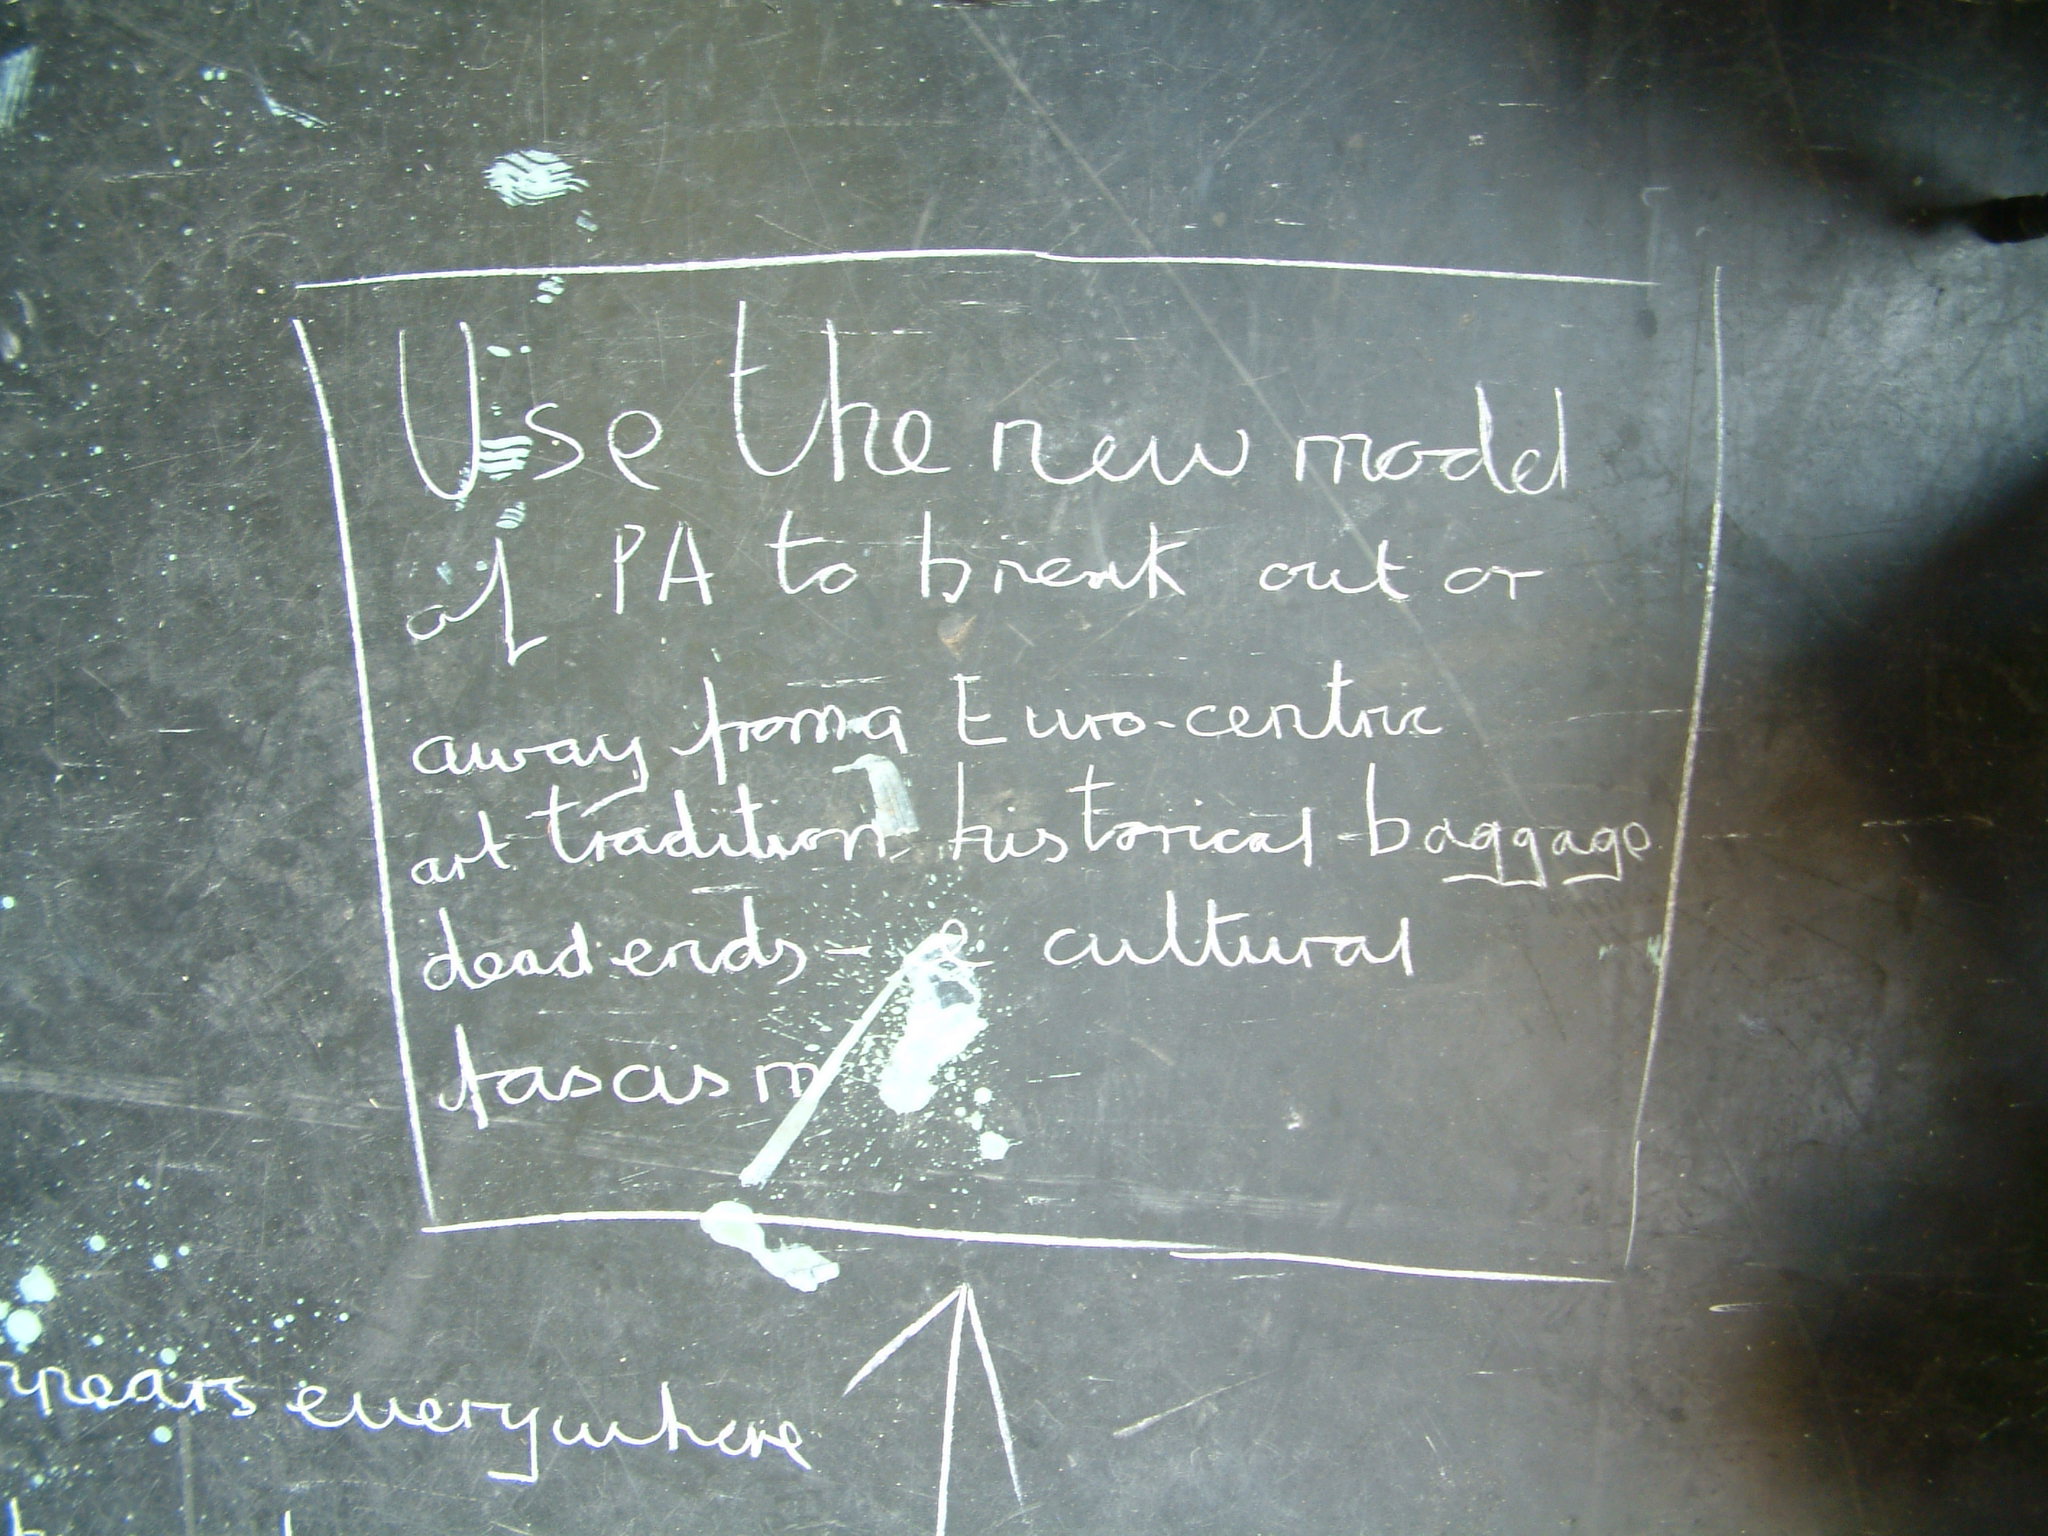 Use the new model
of PA to break out or
away from a Euro-centric
art tradition historical baggage
dead ends - & cultural
fascism
everywhere